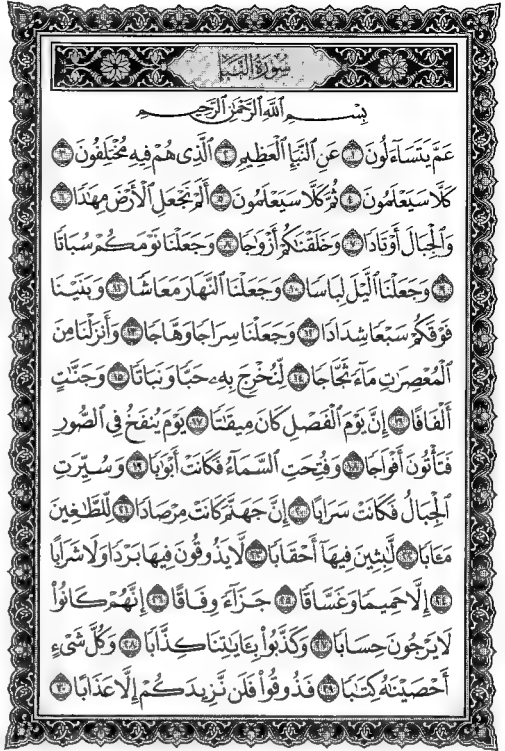 سُورَةُ النَّبَإِ
بِسْمِ اللَّهِ الرَّحْمَٰنِ الرَّحِيمِ
عَمَّ يَتَسَآءَلُونَ ١ عَنِ ٱلنَّبَإِ ٱلْعَظِيمِ ٢ ٱلَّذِى هُمْ فِيهِ مُخْتَلِفُونَ ٣
كَلَّا سَيَعْلَمُونَ ٤ ثُمَّ كَلَّا سَيَعْلَمُونَ ٥ أَلَمْ نَجْعَلِ ٱلْأَرْضَ مِهَٰدًا ٦
وَٱلْجِبَالَ أَوْتَادًا ٧ وَخَلَقْنَٰكُمْ أَزْوَٰجًا ٨ وَجَعَلْنَا نَوْمَكُمْ سُبَاتًا
٩ وَجَعَلْنَا ٱلَّيْلَ لِبَاسًا ١٠ وَجَعَلْنَا ٱلنَّهَارَ مَعَاشًا ١١ وَبَنَيْنَا
فَوْقَكُمْ سَبْعًا شِدَادًا ١٢ وَجَعَلْنَا سِرَاجًا وَهَّاجًا ١٣ وَأَنزَلْنَا مِنَ
ٱلْمُعْصِرَٰتِ مَآءً ثَجَّاجًا ١٤ لِّنُخْرِجَ بِهِۦ حَبًّا وَنَبَاتًا ١٥ وَجَنَّٰتٍ
أَلْفَافًا ١٦ إِنَّ يَوْمَ ٱلْفَصْلِ كَانَ مِيقَٰتًا ١٧ يَوْمَ يُنفَخُ فِى ٱلصُّورِ
فَتَأْتُونَ أَفْوَاجًا ١٨ وَفُتِحَتِ ٱلسَّمَآءُ فَكَانَتْ أَبْوَٰبًا ١٩ وَسُيِّرَتِ
ٱلْجِبَالُ فَكَانَتْ سَرَابًا ٢٠ إِنَّ جَهَنَّمَ كَانَتْ مِرْصَادًا ٢١ لِّلطَّٰغِينَ
مَـَٔابًا ٢٢ لَّٰبِثِينَ فِيهَآ أَحْقَابًا ٢٣ لَّا يَذُوقُونَ فِيهَا بَرْدًا وَلَا شَرَابًا
٢٤ إِلَّا حَمِيمًا وَغَسَّاقًا ٢٥ جَزَآءً وِفَاقًا ٢٦ إِنَّهُمْ كَانُوا۟
لَا يَرْجُونَ حِسَابًا ٢٧ وَكَذَّبُوا۟ بِـَٔايَٰتِنَا كِذَّابًا ٢٨ وَكُلَّ شَىْءٍ
أَحْصَيْنَٰهُ كِتَٰبًا ٢٩ فَذُوقُوا۟ فَلَن نَّزِيدَكُمْ إِلَّا عَذَابًا ٣٠